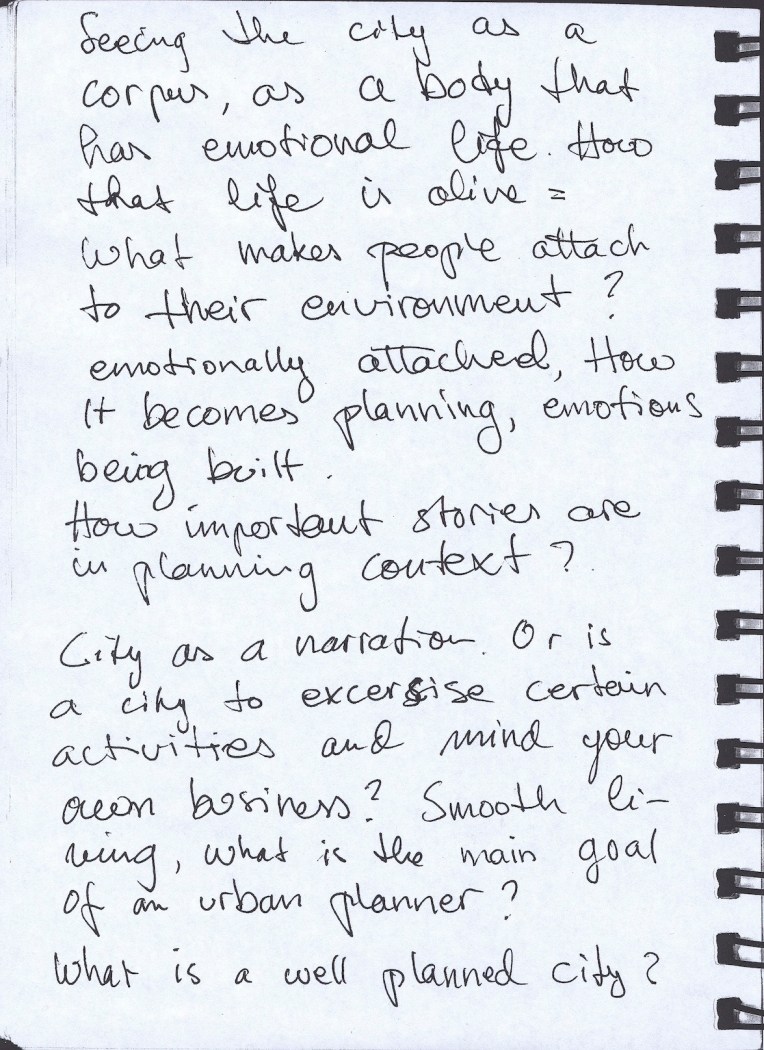 Seeing the city as a
corpus, as a body that
has emotional life. How
that life is alive =
What makes people attach
to their environment?
emotionally attached, How
it becomes planning, emotions
being built.
How important stories are
in planning context?
City as a narration. Or is
a city to excersise certain
activities and mind your
own business? Smooth li-
ving, what is the main goal
of an urban planner?
What is a well planned city?